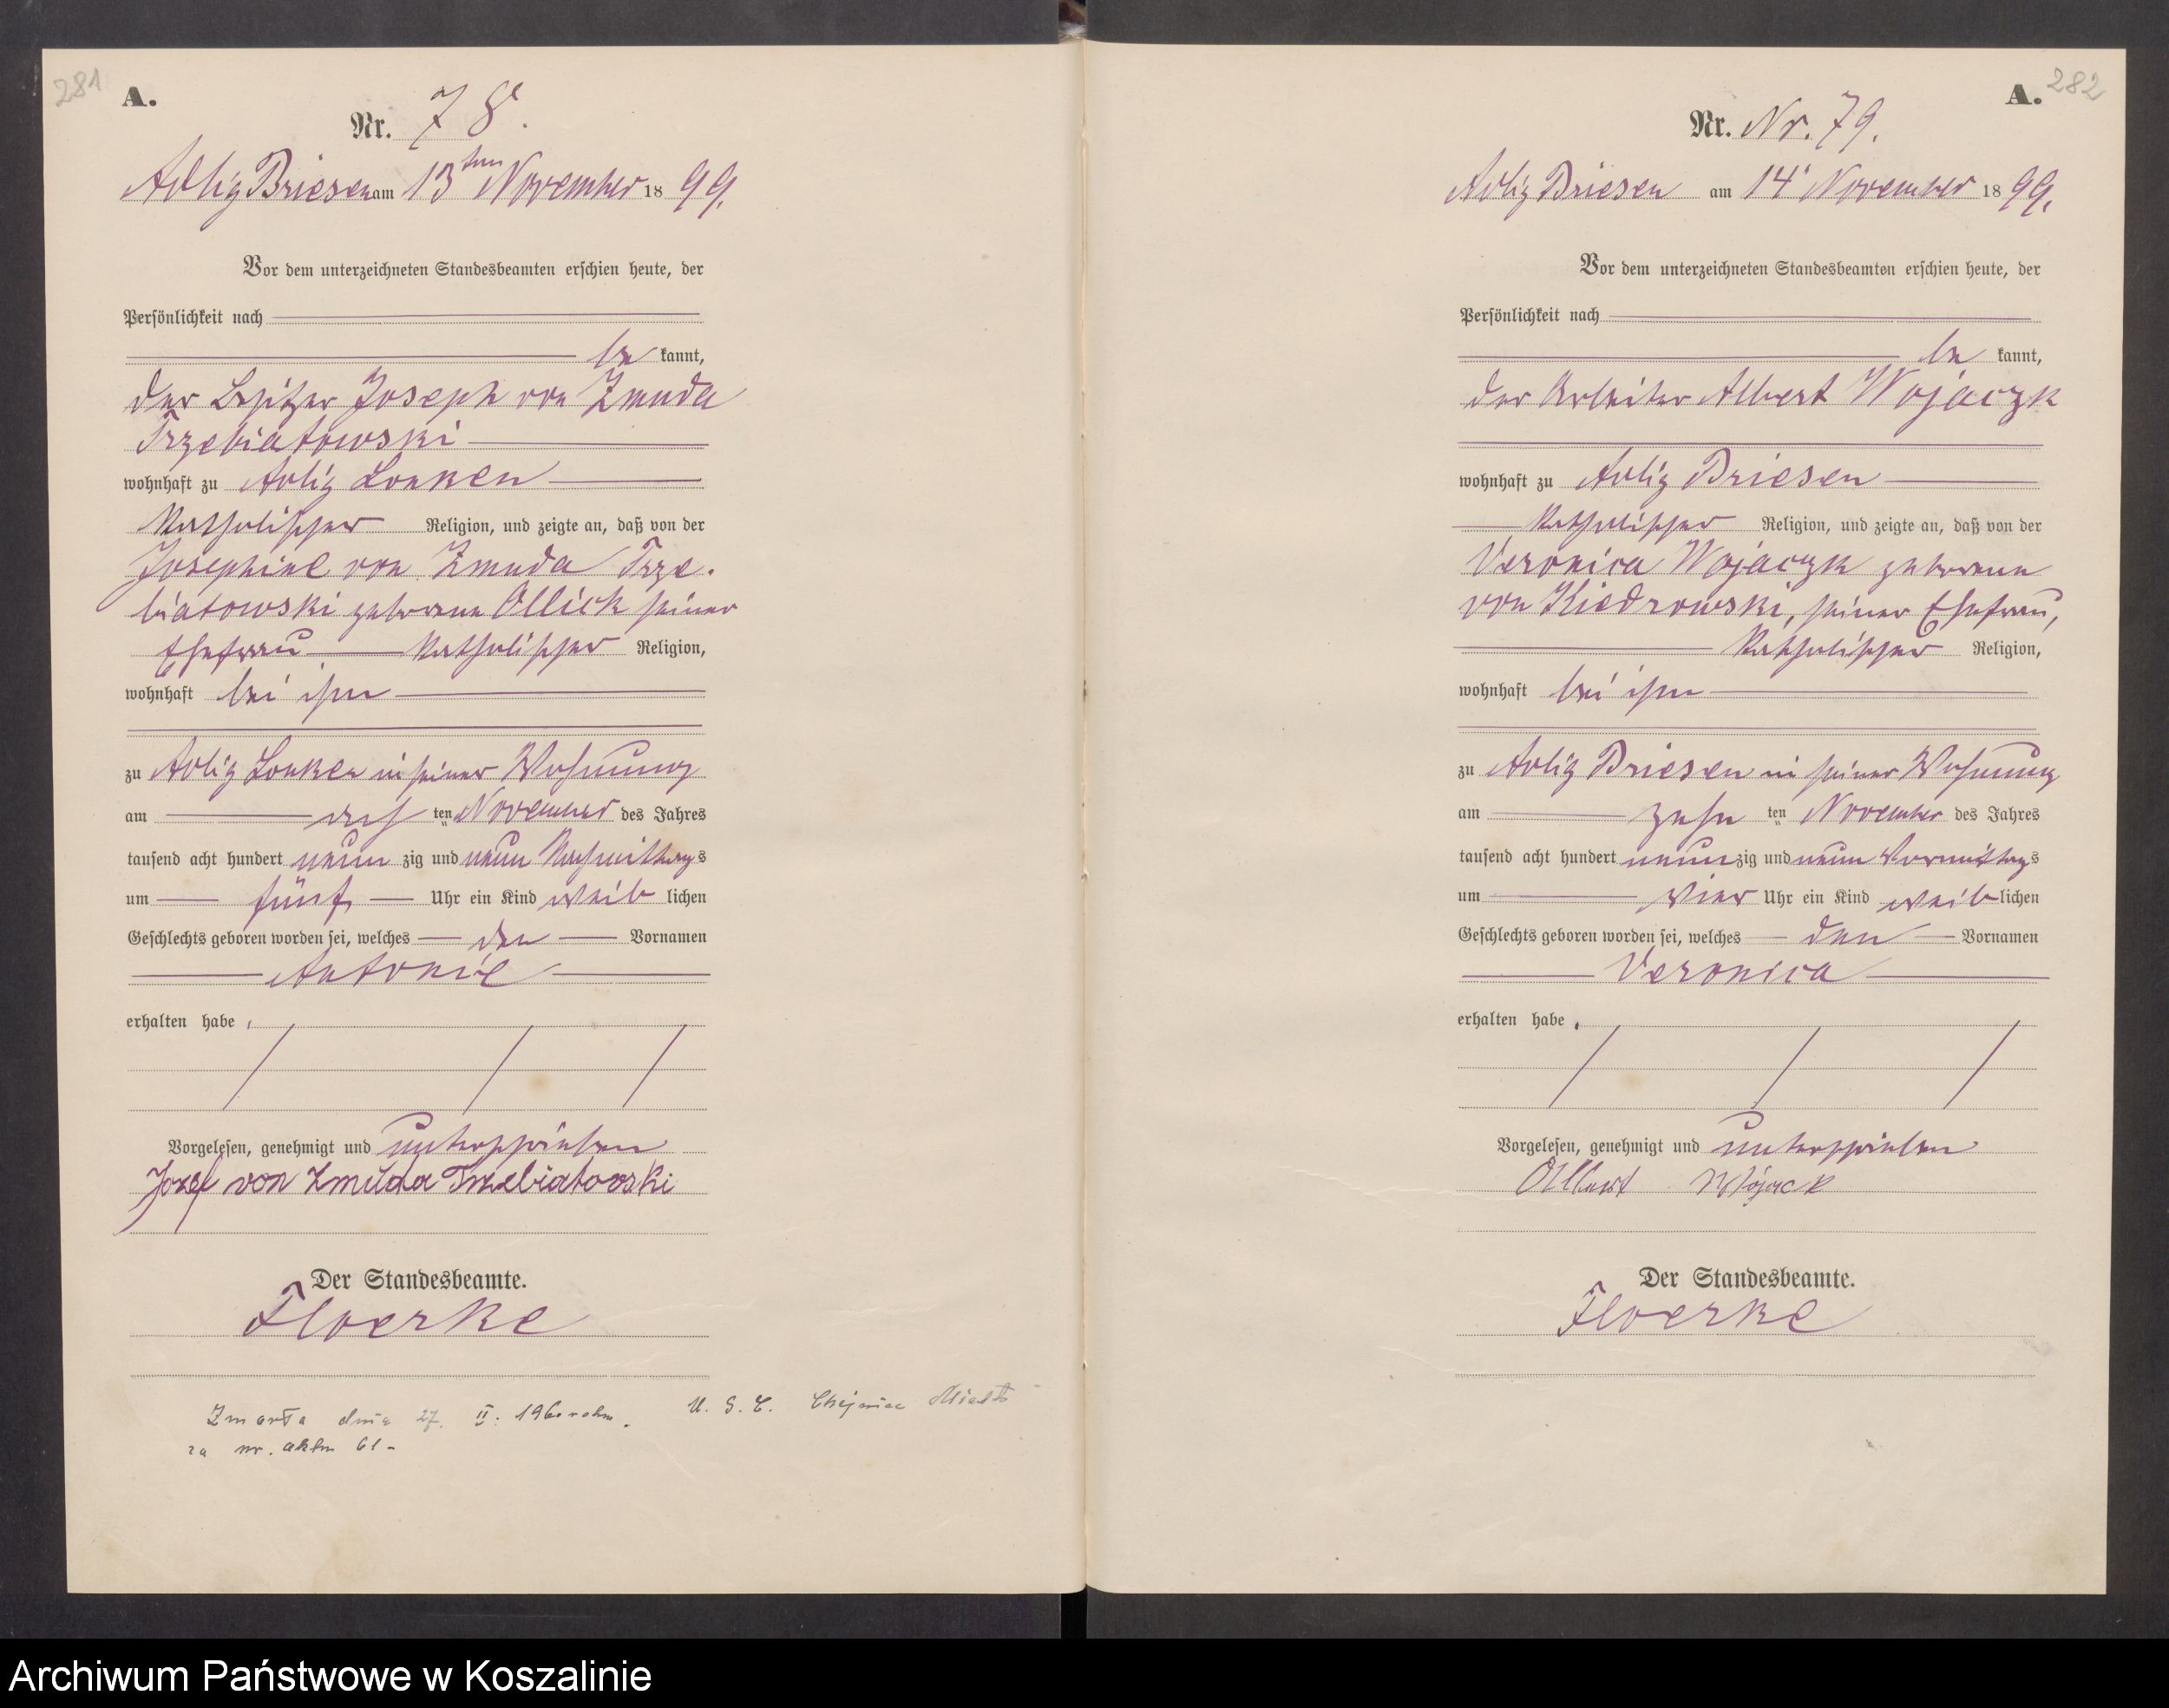 281
A.
Nr. 78.
Adlig Briesen am 13ten November 1899.
Vor dem unterzeichneten Standesbeamten erschien heute, der
Persönlichkeit nach
be kannt,
der Besitzer Joseph von Zmuda
Trzebiatowski
wohnhaft zu Adlig Lonken
katholischer Religion, und zeigte an, daß von der
Josephine von Zmuda Trze.
biatowski geborene Ollick seiner
Ehefrau katholischer Religion,
wohnhaft bei ihm
zu Adlig Lonken in seiner Wohnung
am ten November des Jahres
tausend acht hundert neun zig und neun Nachmittags
um fünf Uhr ein Kind weib lichen
Geschlechts geboren worden sei, welches den Vornamen
Antonie
erhalten habe.
Vorgelesen, genehmigt und unterschrieben
Jozef von Zmuda Trzebiatowski
Der Standesbeamte.
Floerke
Zmarła dnia 27. II. 1960 roku. U. S. C. Chojnice Miasto
za nr. aktu 61-
282
A.
Nr. Nr. 79.
Adlig Briesen am 14' November 1899.
Vor dem unterzeichneten Standesbeamten erschien heute, der
Persönlichkeit nach
be kannt,
der Arbeiter Albert Wojaczk
wohnhaft zu Adlig Briesen
katholischer Religion, und zeigte an, daß von der
Veronica Wojaczk geborene
von Kiedrowski, seiner Ehefrau,
katholischer Religion,
wohnhaft bei ihm
zu Adlig Briesen in seiner Wohnung
am zehn ten November des Jahres
tausend acht hundert neunzig und neun Vormittags
um vier Uhr ein Kind weiblichen
Geschlechts geboren worden sei, welches den Vornamen
Veronica
erhalten habe.
Vorgelesen, genehmigt und unterschrieben
Albert Wojack
Der Standesbeamte.
Floerke
Archiwum Państwowe w Koszalinie